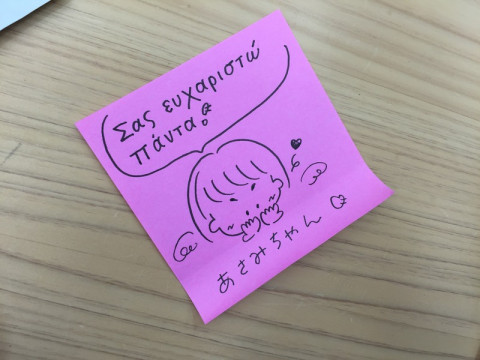 Σας ευχαριστώ
πάντα!
あさみちゃん